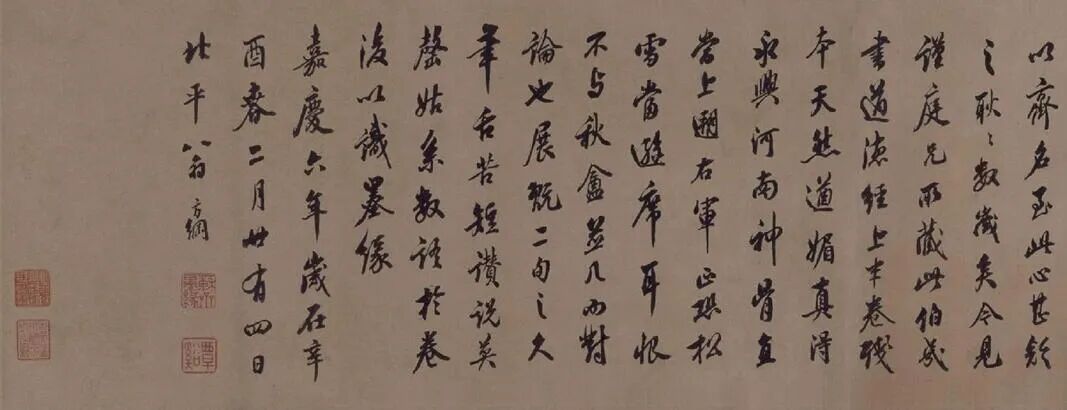 以齊名至此心甚歉
之耿〻數歲矣今見
謹庭兄所藏此伯幾
書道德經上半卷殘
本天然遒媚真得
永興河南神骨直
當上遡右軍正恐松
雪當避席耳恨
不与秋盦並几而對
論也展翫二旬之久
筆舌苦短讚説莫
罄姑系數語於卷
後以識墨緣
嘉慶六年歲在辛
酉春二月廿有四日
北平翁方綱